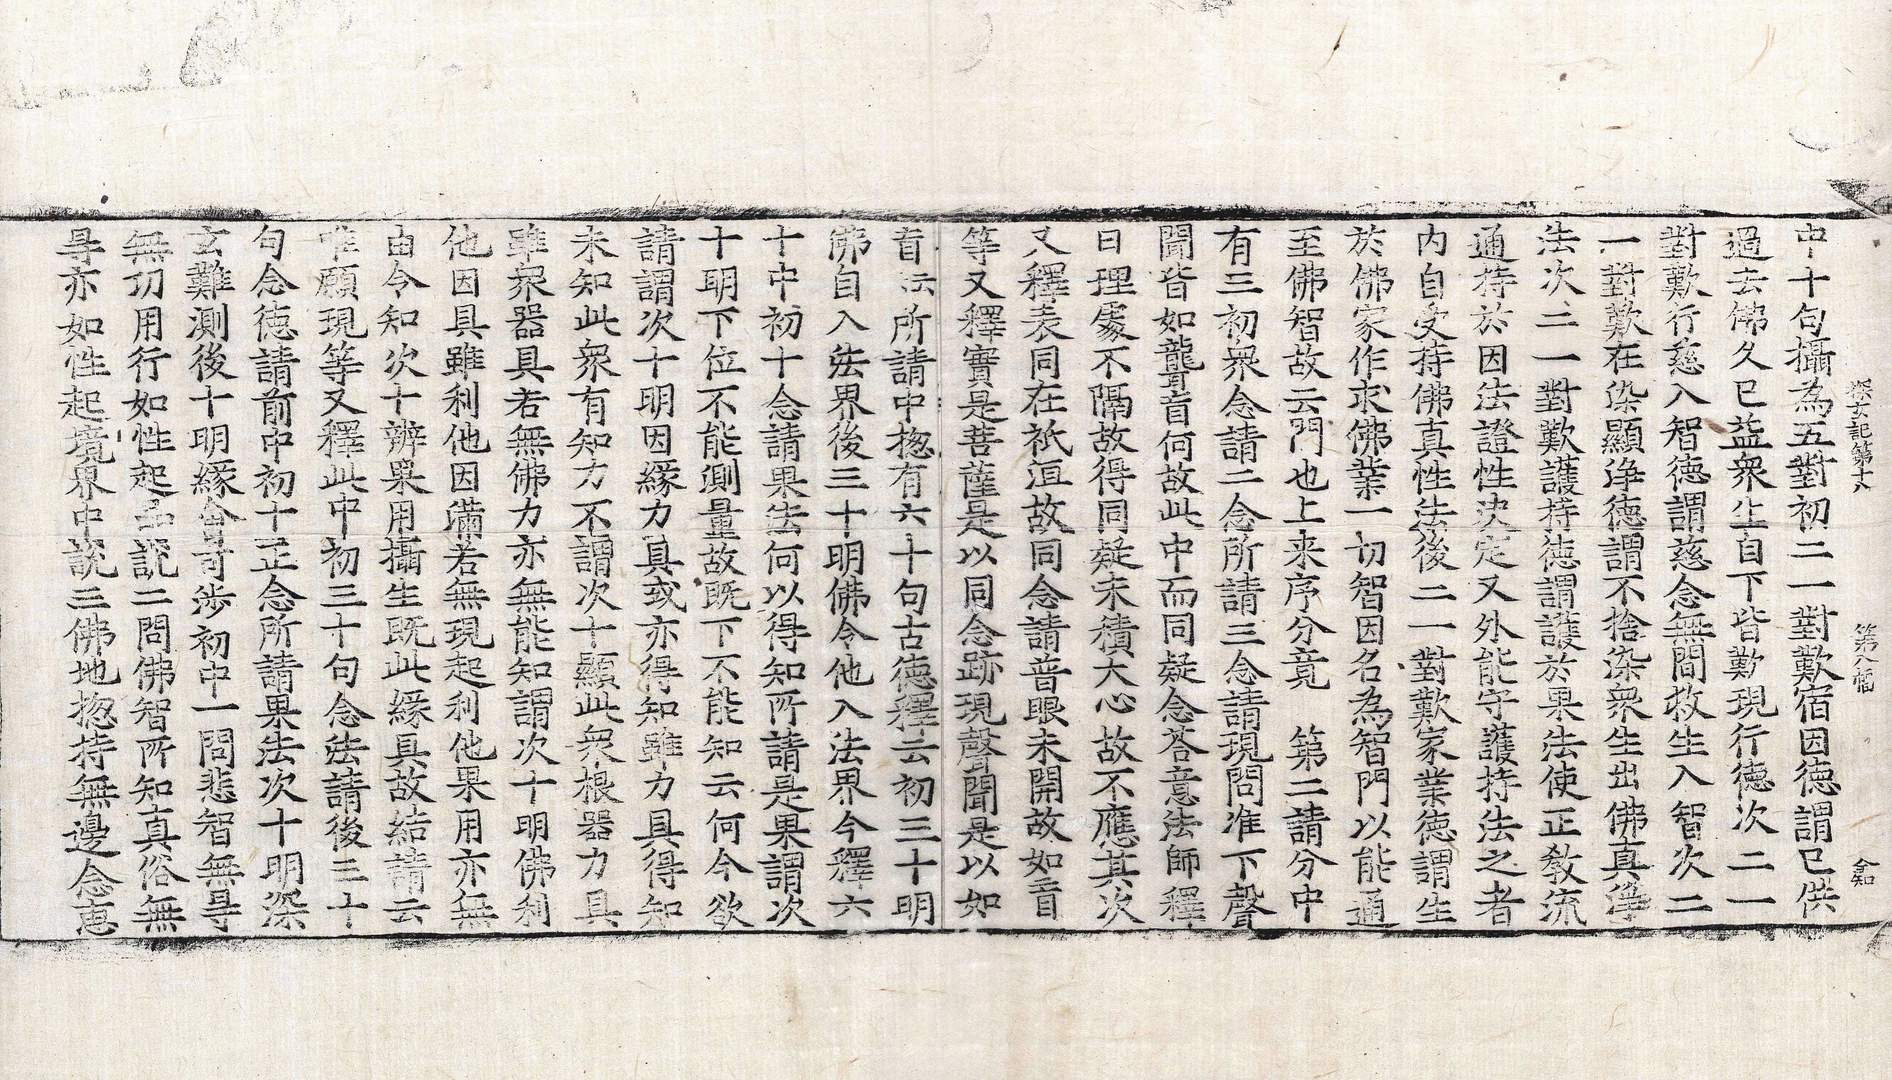 探玄記第十八　第八幅　㑒知
中十句攝為五對初二一對歎宿因德謂已供
過去佛久已益衆生自下皆歎現行德次二一
對歎行慈入智德謂慈念無間救生入智次二
一對歎在染顯淨德謂不捨染衆生出佛真淨
法次二一對歎護持德謂護於果法使正教流
通持於因法證性決定又外能守護持法之者
內自受持佛真性法後二一對歎家業德謂生
於佛家作求佛業一切智因名為智門以能通
至佛智故云門也上来序分竟　第二請分中
有三初衆念請二念所請三念請現問准下聲
聞皆如聾盲何故此中而同疑念荅意法師釋
曰理處不隔故得同疑未積大心故不應其次
又釋表同在祇洹故同念請普眼未開故如盲
等又釋實是菩薩是以同念跡現聲聞是以如
盲　所請中揔有六十句古德釋云初三十明
佛自入法界後三十明佛令他入法界今釋六
十中初十念請果法何以得知所請是果謂次
十明下位不能測量故既下不能知云何今欲
請謂次十明因緣力具或亦得知雖力具得知
未知此衆有知力不謂次十顯此衆根器力具
雖衆器具若無佛力亦無能知謂次十明佛利
他因具雖利他因滿若無現起利他果用亦無
由令知次十辨果用攝生既此緣具故結請云
唯願現等又釋此中初三十句念法請後三十
句念德請前中初十正念所請果法次十明深
玄難測後十明緣會可涉初中一問悲智無㝵
無功用行如性起　說二問佛智所知真俗無
㝵亦如性起境界中說三佛地揔持無邊念恵